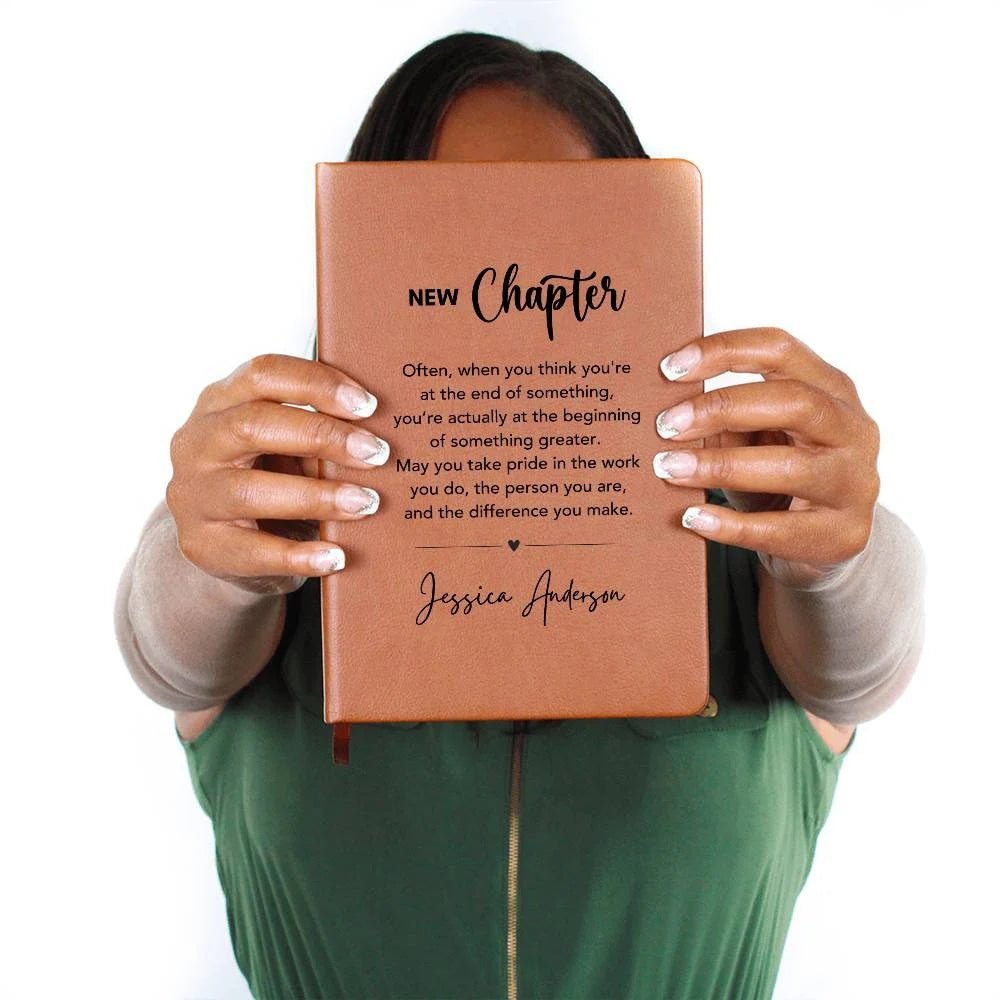 NEW Chapter
Often, when you think you're
at the end of something,
you’re actually at the beginning
of something greater.
May you take pride in the work
you do, the person you are,
and the difference you make.
Jessica Anderson